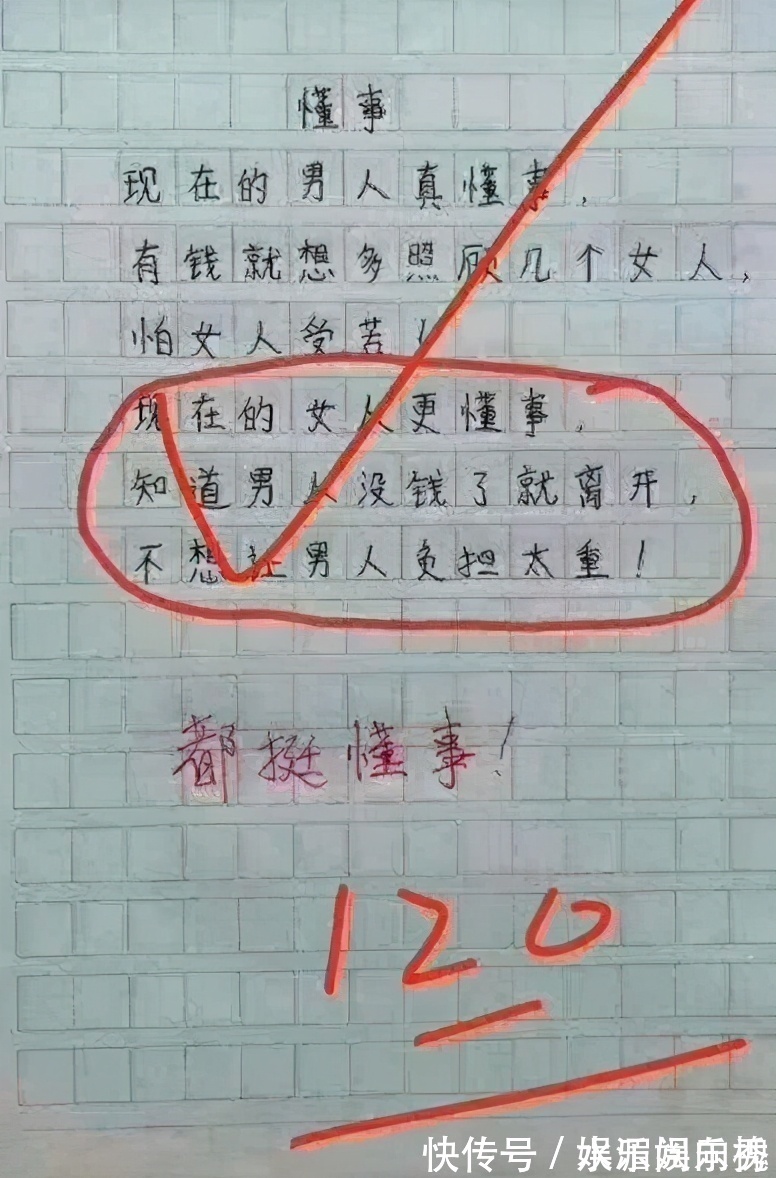 懂事
现在的男人真懂事,
有钱就想多照顾几个女人,
怕女人受苦!
现在的女人更懂事,
知道男人没钱了就离开,
不想让男人负担太重!
都挺懂事!
120
快传号/娱